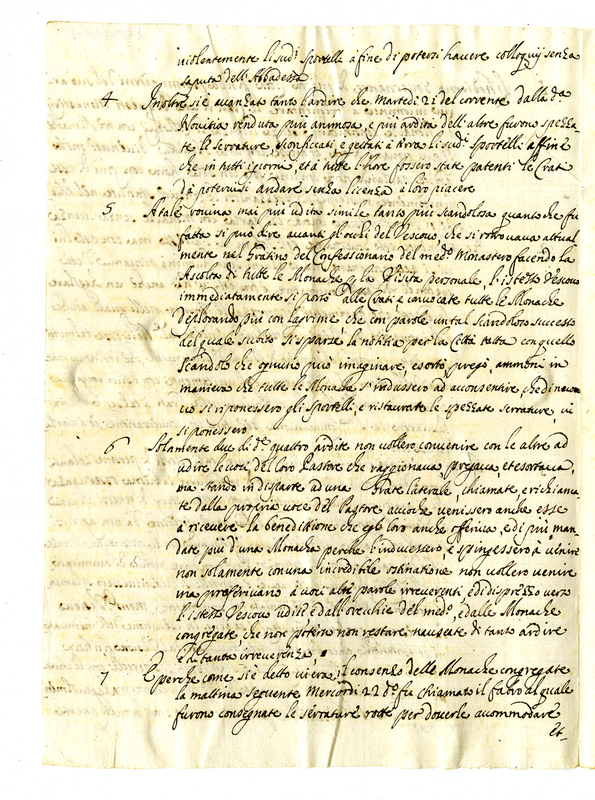 violentemente li sud.i Sportelli à fine di potersi havere colloquij senza
saputa dell'Abbadessa
4 Inoltre si è avanzat tanto l'ardire che Martedi 21 del corrente dalla d.a
Novitia renduta più animosa, e più ardita dell'altre furono spezza-
te le serrature, sconficcati e gettati à terra li sud.i Sportelli affine
che in tutti i giorni, et à tutte l'hore fossero state patenti le Grati
da potervisi andare senza licenza à loro piacere
5 A tale rovina mai più udita simile tanto più scandolosa quanto che fu
fatta si può dire avanti gl'occhi del Vescovo, che si ritrovava attual-
mente nel Gratino del Confessionario del med.o Monastero facendo la
Ascolta di tutte le Monache p la Visita personale, l'istesso Vescovo
immediatamente si portò alle Grati, e convocate tutte le Monache
deplorando più con lagrime che con parole un tal scandoloso successo
del quale subito si sparse la notitia per la Città tutta con quello
scandolo che ogniuno può imaginare, esortò, pregò, ammonì in
maniera che tutte le Monache s'indussero ad acconsentire, che di nuo
vo si riponessero gli Sportelli, e ristaurate le spezzate serrature, vi
si ponessero
6 Solamente due di d.e quattro ardite non vollero convenire con le altre ad
udire le voci del loro Pastore che raggionava, pregava, et esortava,
ma stando in disparte ad una Grate laterale, chiamate, e richiama-
te dalla propria voce del Pastore accioche venissero anche esse
à ricevere la benedittione che egli loro anche offeriva, e di più man-
date più d'una Monacha perche l'inducessero, e spingessero à venire
non solamente con una incredibile ostinatione non vollero venire
ma proferivano à voci alte parole irreverenti, e di disprezzo verso
l'istesso Vescovo udite dall'orecchie del med.o, e dalle Monache
congregate, che non potero non restare nauseate di tanto ardire
e di tanta irreverenza.
7 E perche come si è detto vi era il consenso delle Monache congregate
la mattina sequente Mercordi 22 d.o fu chiamato il fabro al quale
furono consegnate le serrature rotte per doverle accommodare
et-